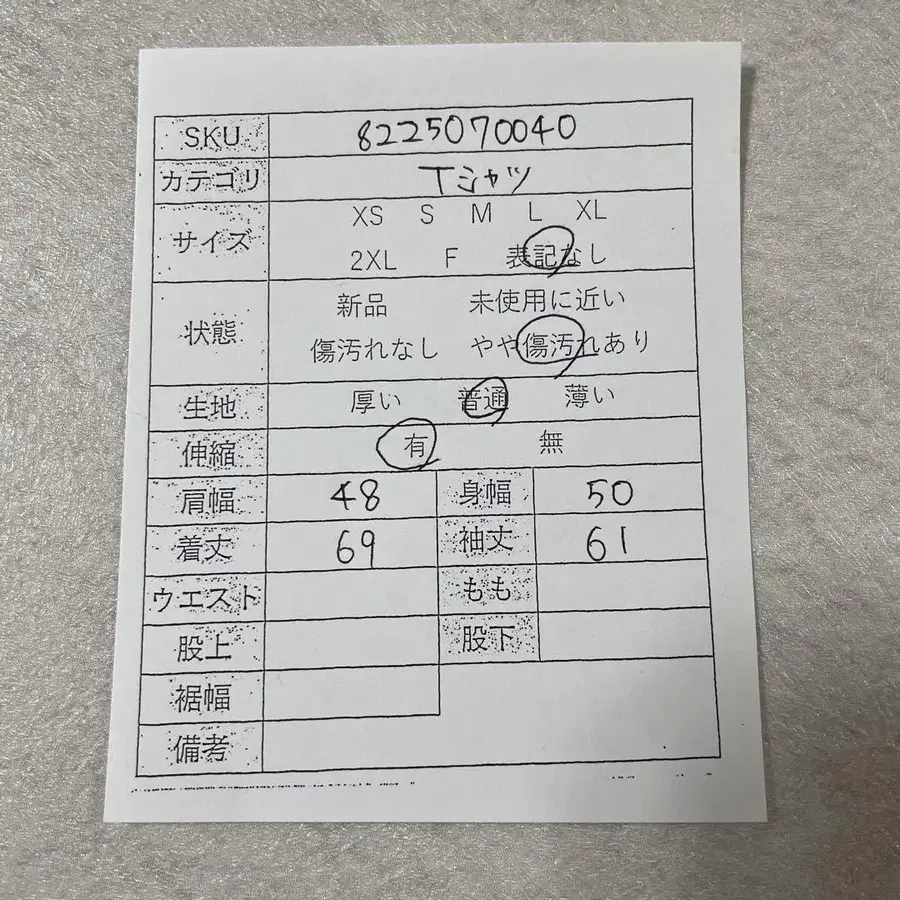 SKU 8225070040
カテゴリ Tシャツ
サイズ XS S M L XL
2XL F 表記なし
状態 新品 未使用に近い
傷汚れなし やや傷汚れあり
生地 厚い 普通 薄い
伸縮 有 無
肩幅 48 身幅 50
着丈 69 袖丈 61
ウエスト もも
股上 股下
裾幅
備考